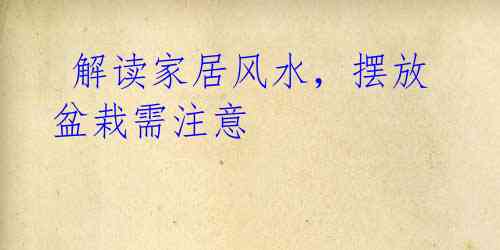 解读家居风水，摆放
盆栽需注意